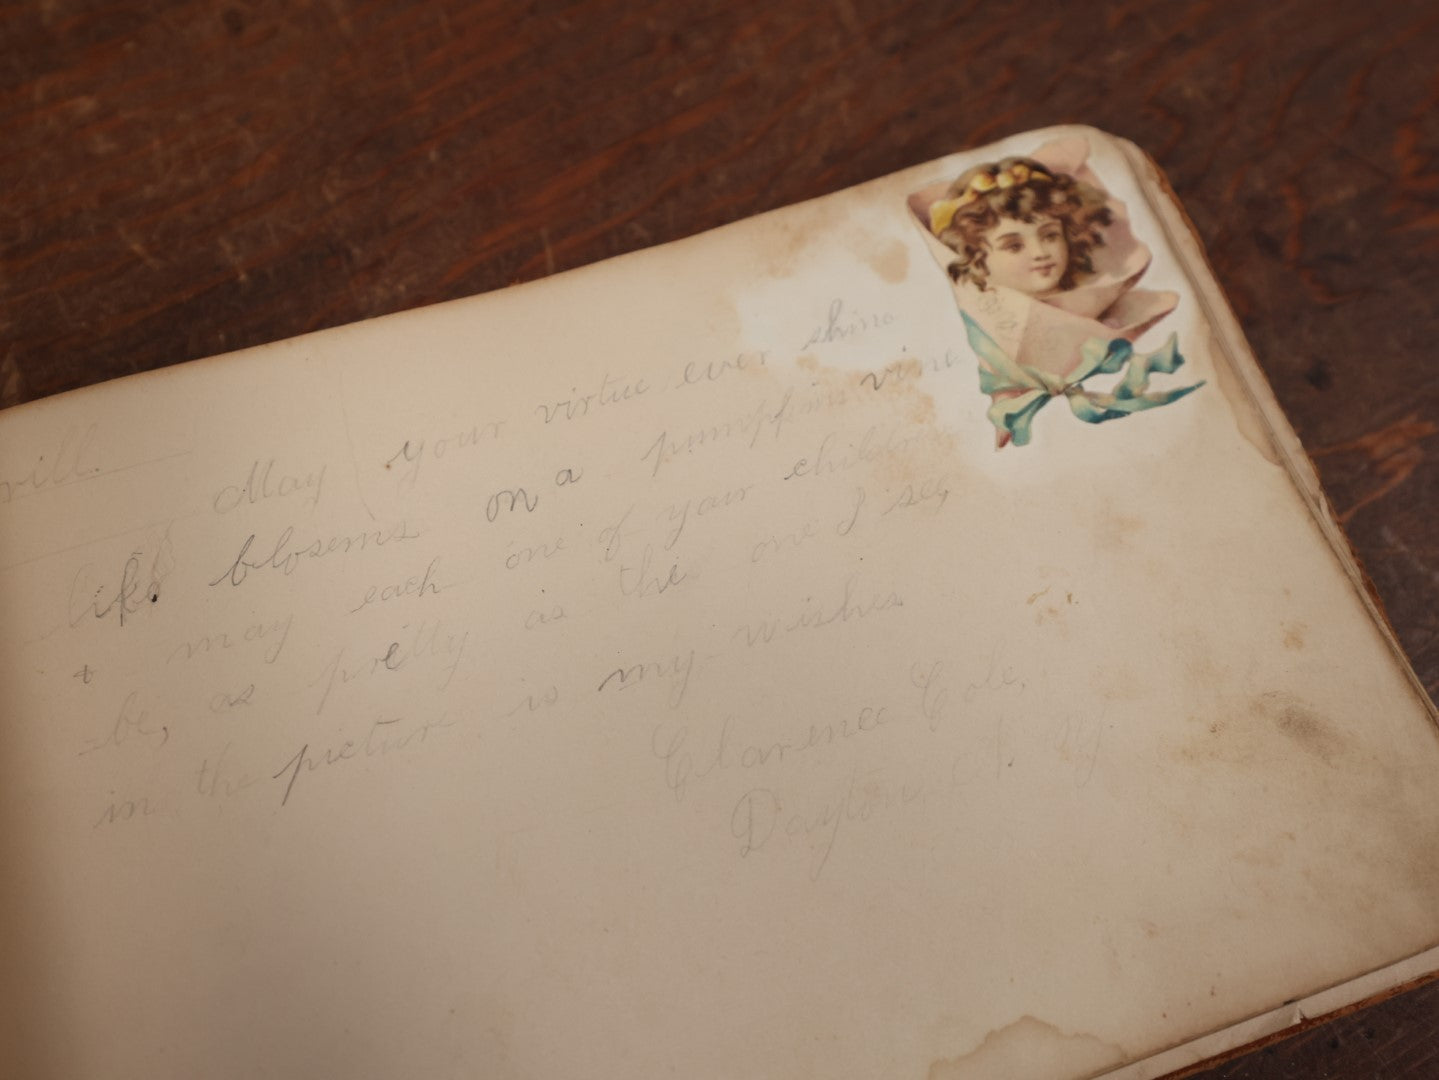 May your virtue ever shine
like blosems on a pumpkin vine
+ may each one of your children
be, as pretty as the one I see,
in the picture is my wishes
Clarence Cole,
Dayton